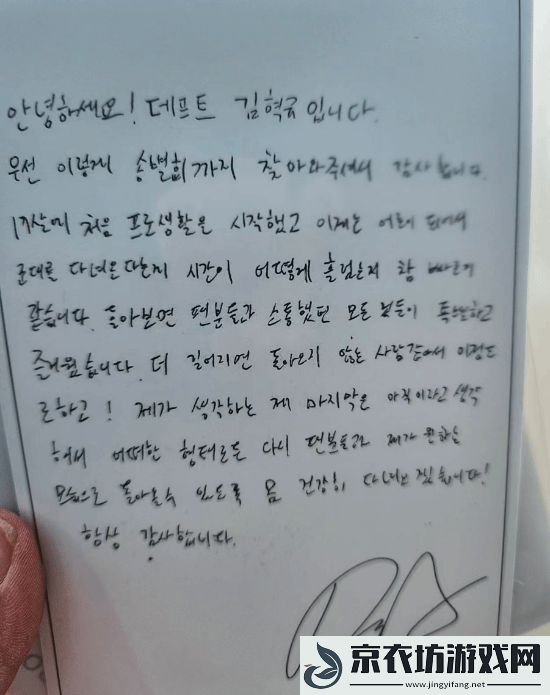 안녕하세요! 데프트 김혁규입니다.
우선 이렇게 송별회까지 찾아와주셔서 감사합니다.
17살에 처음 프로생활을 시작했고 이제는 어른이 되어서
군대를 다녀온다는지 시간이 어떻게 흘렀는지 참 빠른거
같습니다. 돌아보면 팬분들과 소통했던 모든 날들이 특별하고
즐거웠습니다. 더 길어지면 돌아오지 않는 사람같아서 이정도
로하고! 제가 생각하는 제 마지막은 아직이라고 생각
해서 어떠한 형태로든 다시 팬분들과 제가 원하는
모습으로 돌아올수 있도록 몸 건강히 다녀오겠습니다!
항상 감사합니다.
京衣坊游戏网
www.jingyifang.net